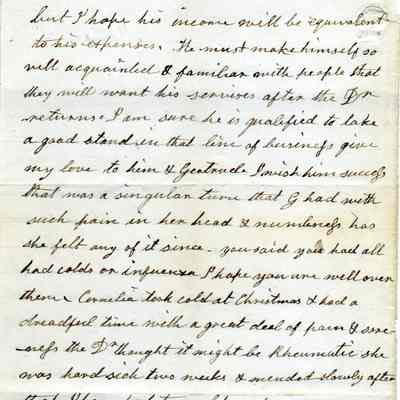 but I hope his income will be equivalent
to his expenses. He must make himself so
well acquainted & familiar with people that
they will want his services after the Dr
returns. I am sure he is qualified to take
a good stand in that line of business give
my love to him & Geatrude I wish him success
that was a singular time that G had with
such pain in her head & numbness has
she felt any of it since – you said you had all
had colds or influenza I hope you are well over
them. Cornelia took cold at Christmas & had a
dreadful time with a great deal of pain & sore-
-ness the Dr thought it might be Rheumatic she
was hard sick two weeks & mended slowly after
that